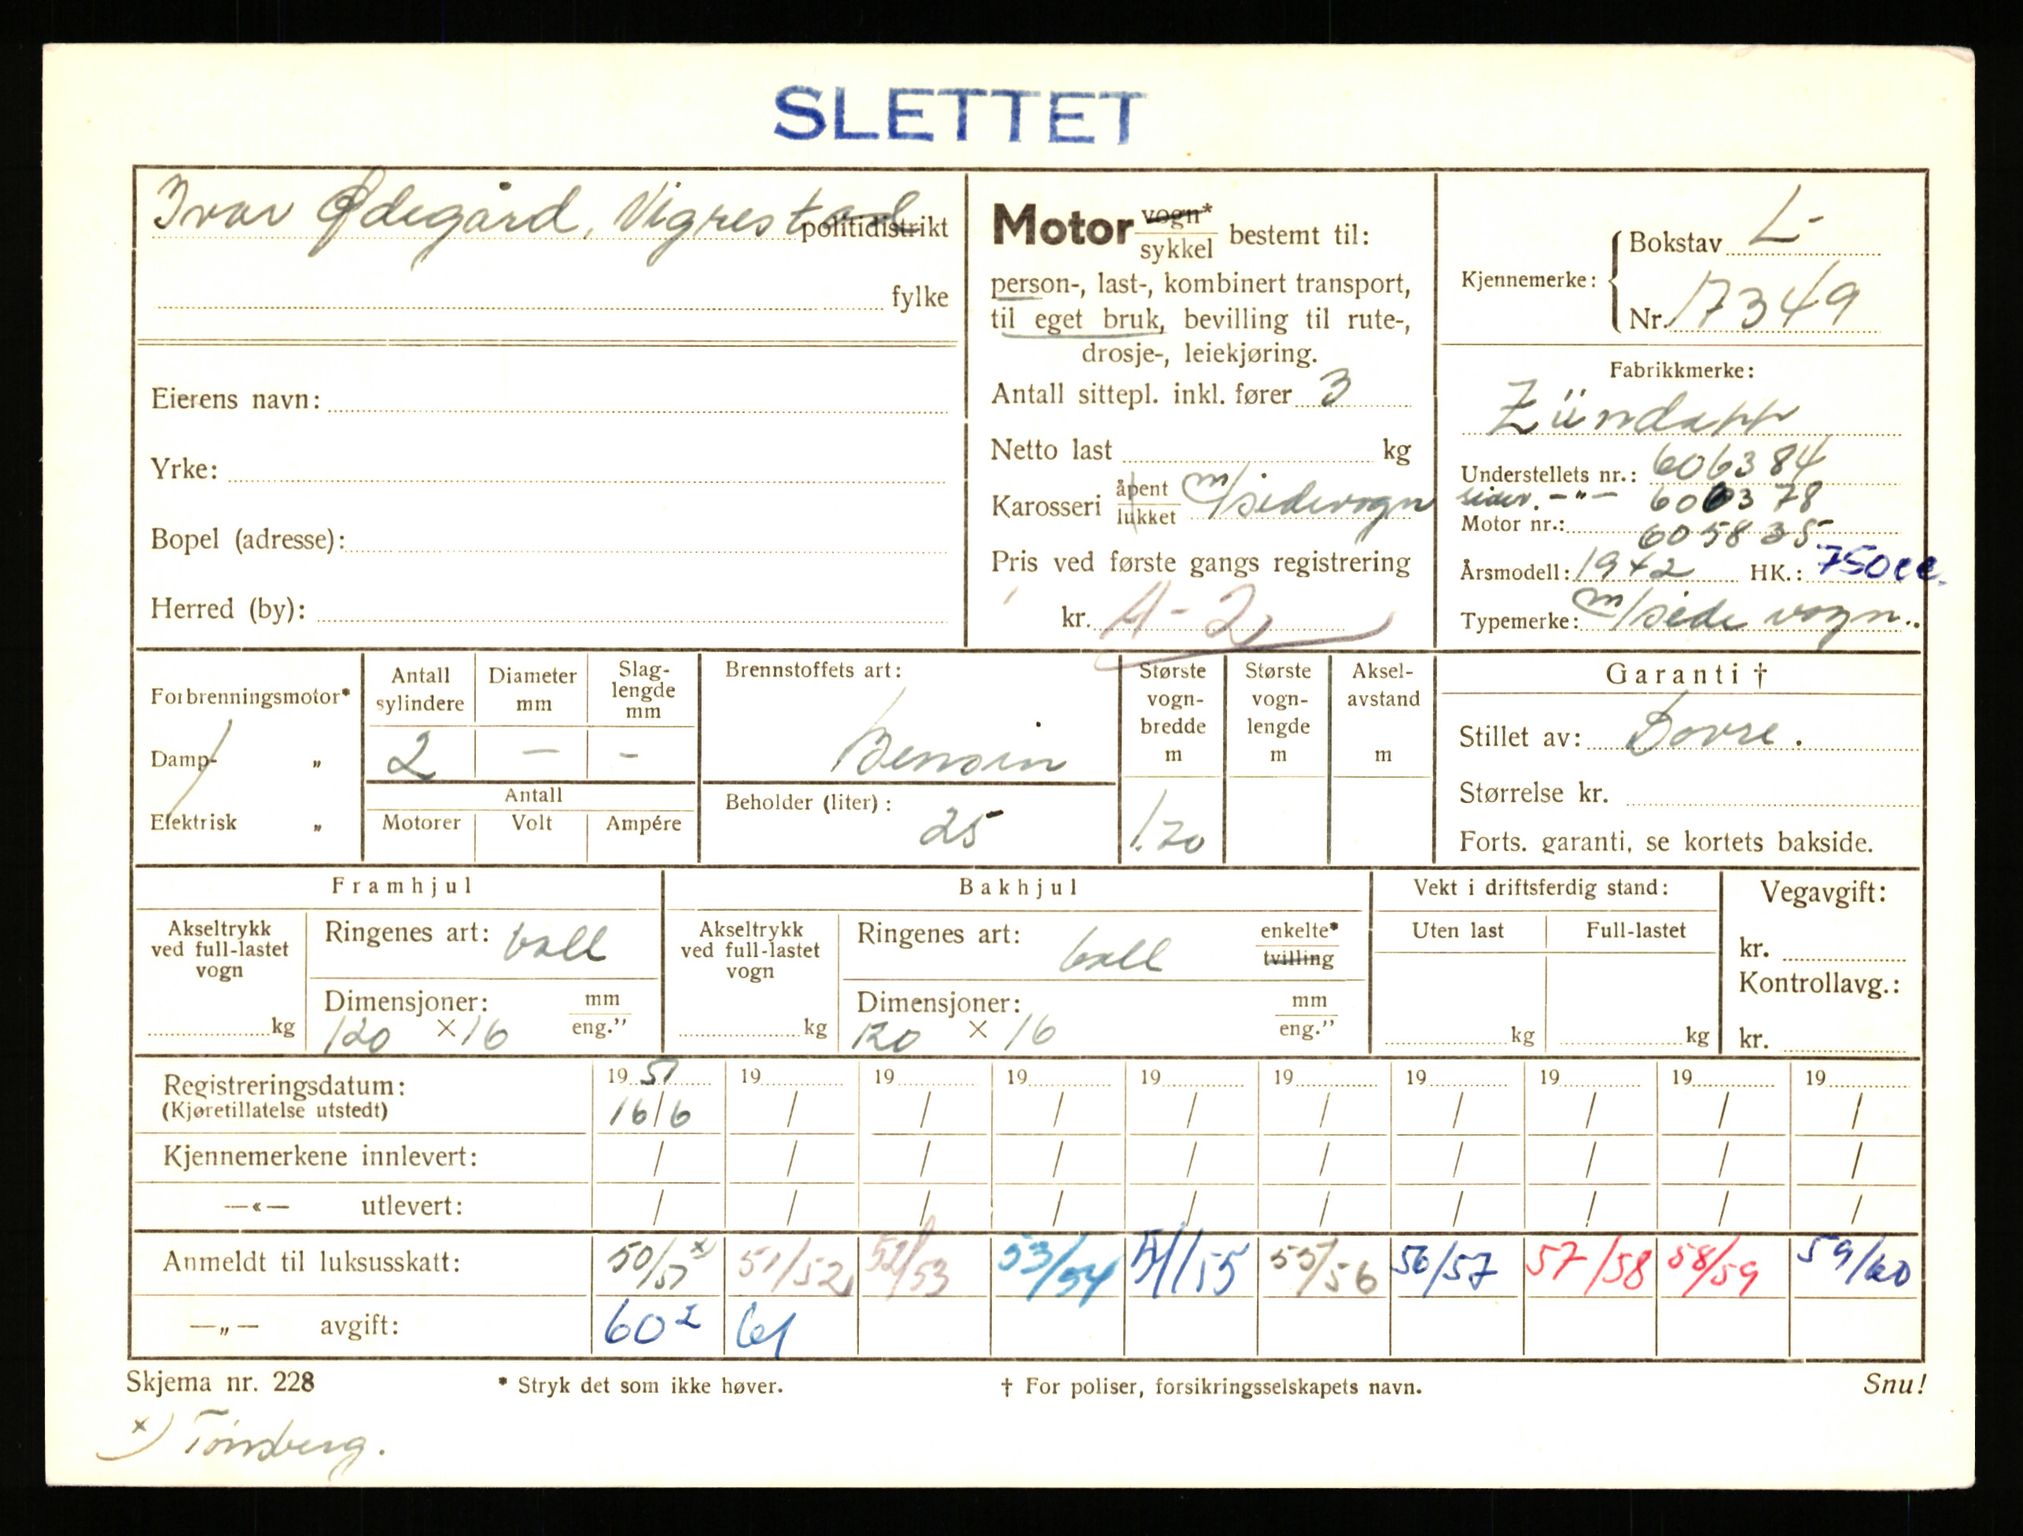 SLETTET
Ivar Ødegård, Vigrestad politidistrikt
fylke
Eierens navn:
Yrke:
Bopel (adresse):
Herred (by):
Motor vogn* sykkel bestemt til:
person-, last-, kombinert transport,
til eget bruk, bevilling til rute-,
drosje-, leiekjøring.
Antall sittepl. inkl. fører 3
Netto last kg
Karosseri åpent lukket m/sidevogn
Pris ved første gangs registrering
kr. A-2
Kjennemerke: Bokstav L-
Nr. 17349
Fabrikkmerke:
Zündapp
Understellets nr.: 606384
sidev. -"- 606378
Motor nr.: 605835
Årsmodell: 1942 HK.: 750cc.
Typemerke: m/side vogn..
Forbrenningsmotor*
Damp- „
Elektrisk „
Antall sylindere
2
Diameter mm
—
Slag-lengde mm
-
Antall
Motorer Volt Ampére
Brennstoffets art:
Bensin
Beholder (liter):
25
Største vogn-bredde m
1.20
Største vogn-lengde m
Aksel-avstand m
Garanti †
Stillet av: Dovre.
Størrelse kr.
Forts. garanti, se kortets bakside.
Framhjul
Akseltrykk ved full-lastet vogn
kg
Ringenes art: ball
Dimensjoner: mm eng.”
120 × 16
Bakhjul
Akseltrykk ved full-lastet vogn
kg
Ringenes art: ball enkelte* tvilling
Dimensjoner: mm eng.”
120 × 16
Vekt i driftsferdig stand:
Uten last Full-lastet
kg kg
Vegavgift:
kr.
Kontrollavg.:
kr.
Registreringsdatum: 19 51 19 19 19 19 19 19 19 19 19
(Kjøretillatelse utstedt) 16/6 / / / / / / / / /
Kjennemerkene innlevert: / / / / / / / / / /
—«— utlevert: / / / / / / / / / /
Anmeldt til luksusskatt: 50/51 x) 51/52 52/53 53/54 54/55 55/56 56/57 57/58 58/59 59/60
—„— avgift: 60 61
Skjema nr. 228 * Stryk det som ikke høver. † For poliser, forsikringsselskapets navn. Snu!
x) Tønsberg.